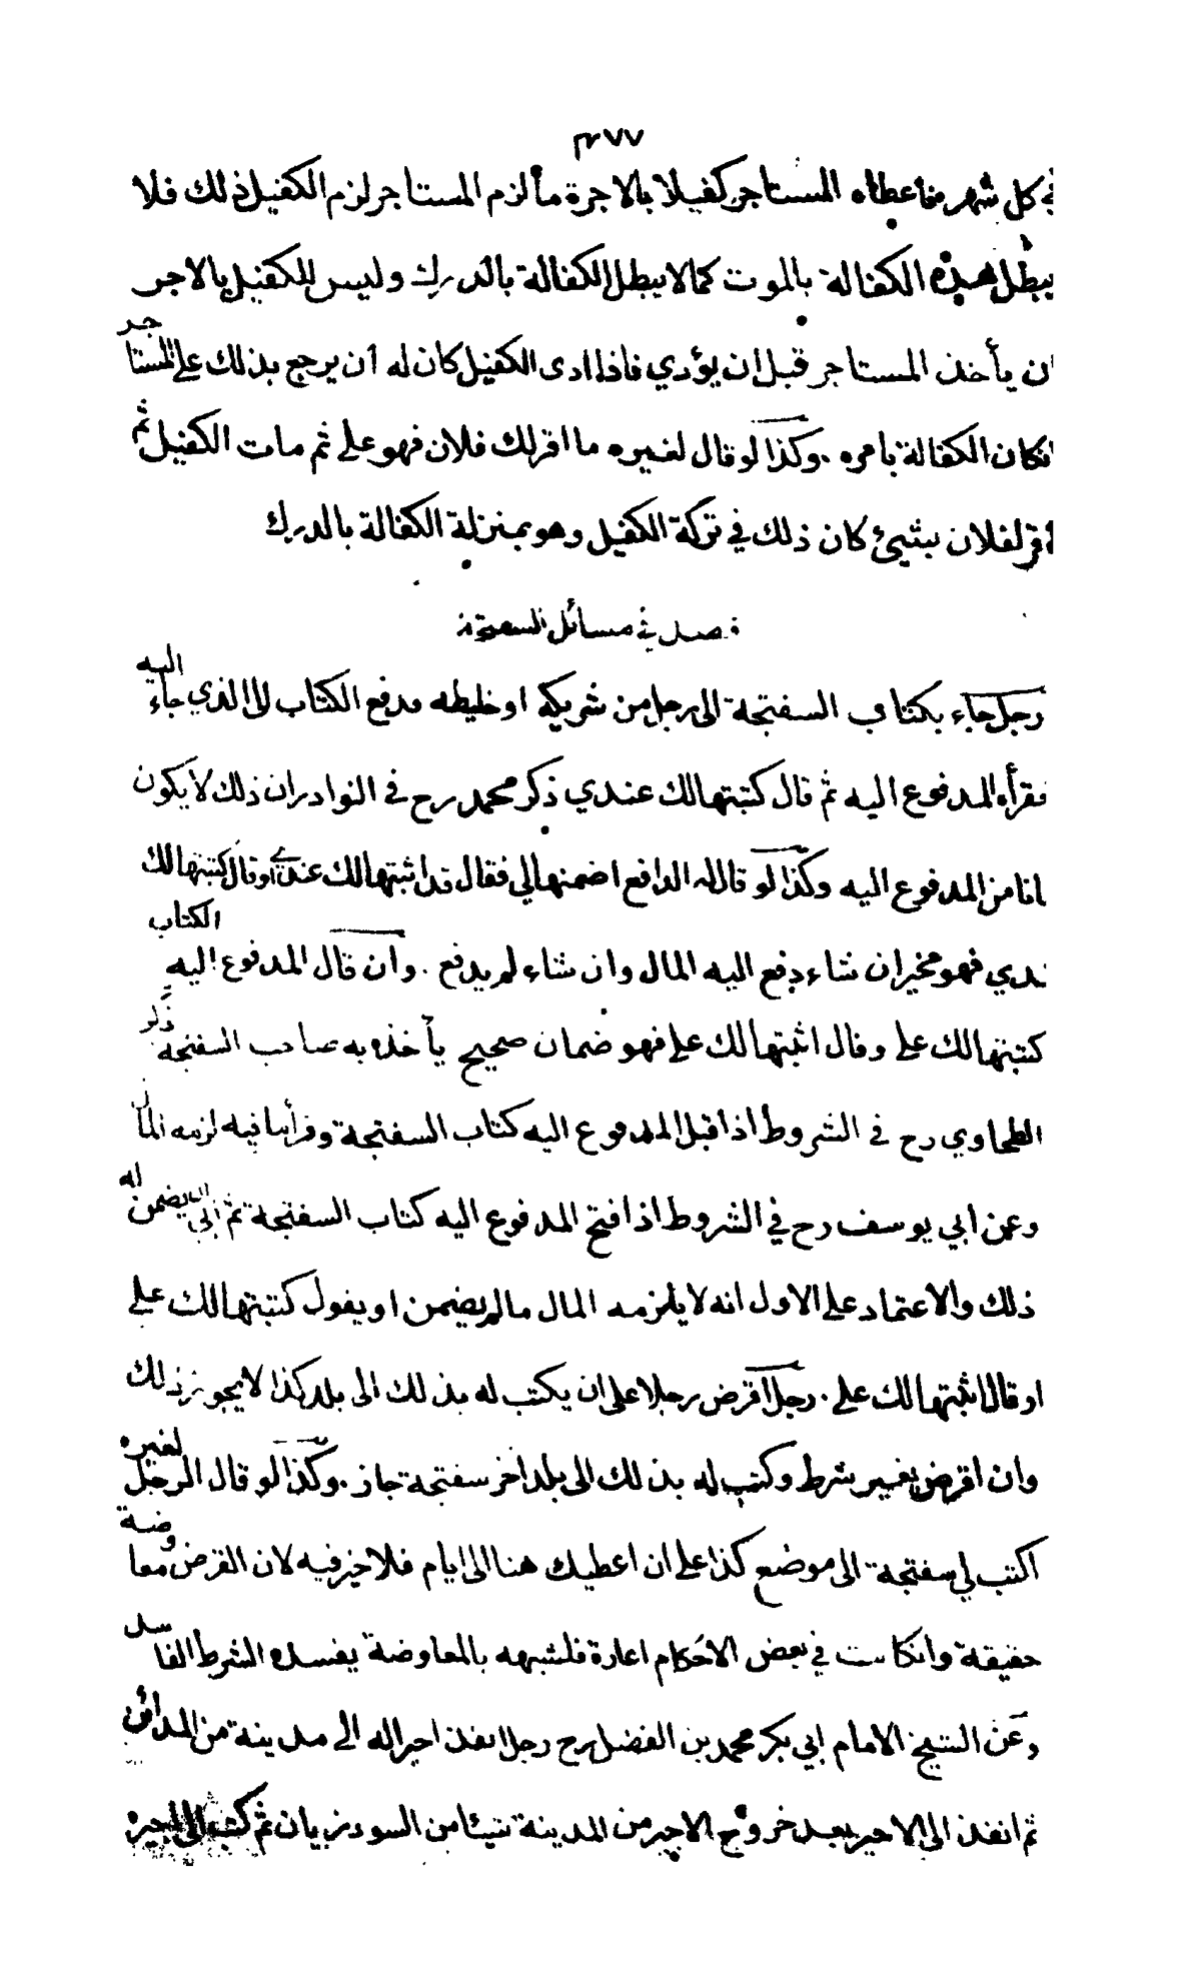 ٣٧٧
في كل شهر فاعطاه المستاجر كفيلا بالاجرة ما لزم المستاجر لزم الكفيل ذلك فلا
يبطل هذه الكفالة بالموت كما لا يبطل الكفالة بالدرك وليس للكفيل بالاجر
ان يأخذ المستاجر قبل ان يؤدي فاذا ادى الكفيل كان له ان يرجع بذلك على المستاجر
انكان الكفالة بامره . وكذا لو قال لغيره ما اقر لك فلان فهو علي ثم مات الكفيل ثم
اقر لفلان بشيئ كان ذلك في تركة الكفيل وهو بمنزلة الكفالة بالدرك
فصل في مسائل السفتجة
رجل جاء بكتاب السفتجة الى رجل من شريكه او خليطه فدفع الكتاب الى الذي جاء اليه
فقرأه المدفوع اليه ثم قال كتبتها لك عندي ذكر محمد رح في النوادر ان ذلك لا يكون
ضمانا من المدفوع اليه وكذا لو قال له الدافع اضمنها لي فقال قد اثبتها لك عندي او قال كتبتها لك
عندي فهو مخير ان شاء دفع اليه المال وان شاء لم يدفع . وان قال المدفوع اليه الكتاب
كتبتها لك علي وقال اثبتها لك علي فهو ضمان صحيح يأخذه به صاحب السفتجة ذكر
الطحاوي رح في الشروط اذا قبل المدفوع اليه كتاب السفتجة وقرأ ما فيه لزمه المال
وعن ابي يوسف رح في الشروط اذا فتح المدفوع اليه كتاب السفتجة ثم ابى ان يضمن له
ذلك والاعتماد على الاول انه لا يلزمه المال ما لم يضمن او يقول كتبتها لك علي
او قال اثبتها لك علي . رجل اقرض رجلا على ان يكتب له بذلك الى بلد كذا لا يجوز ذلك
وان اقرض بغير شرط وكتب له بذلك الى بلد اخر سفتجة جاز . وكذا لو قال الرجل لغيره
اكتب لي سفتجة الى موضع كذا على ان اعطيك هنا الى ايام فلا خير فيه لان القرض معاوضة
حقيقة وانكانت في بعض الاحكام اعارة فلشبهه بالمعاوضة يفسده الشرط الفاسد
وعن الشيخ الامام ابي بكر محمد بن الفضل رح رجل انفذ اجيرا له الى مدينة من المدائن
ثم انفذ الى الاجير بعد خروج الاجير من المدينة شيئا من السود زيان ثم كتب الى اجيره